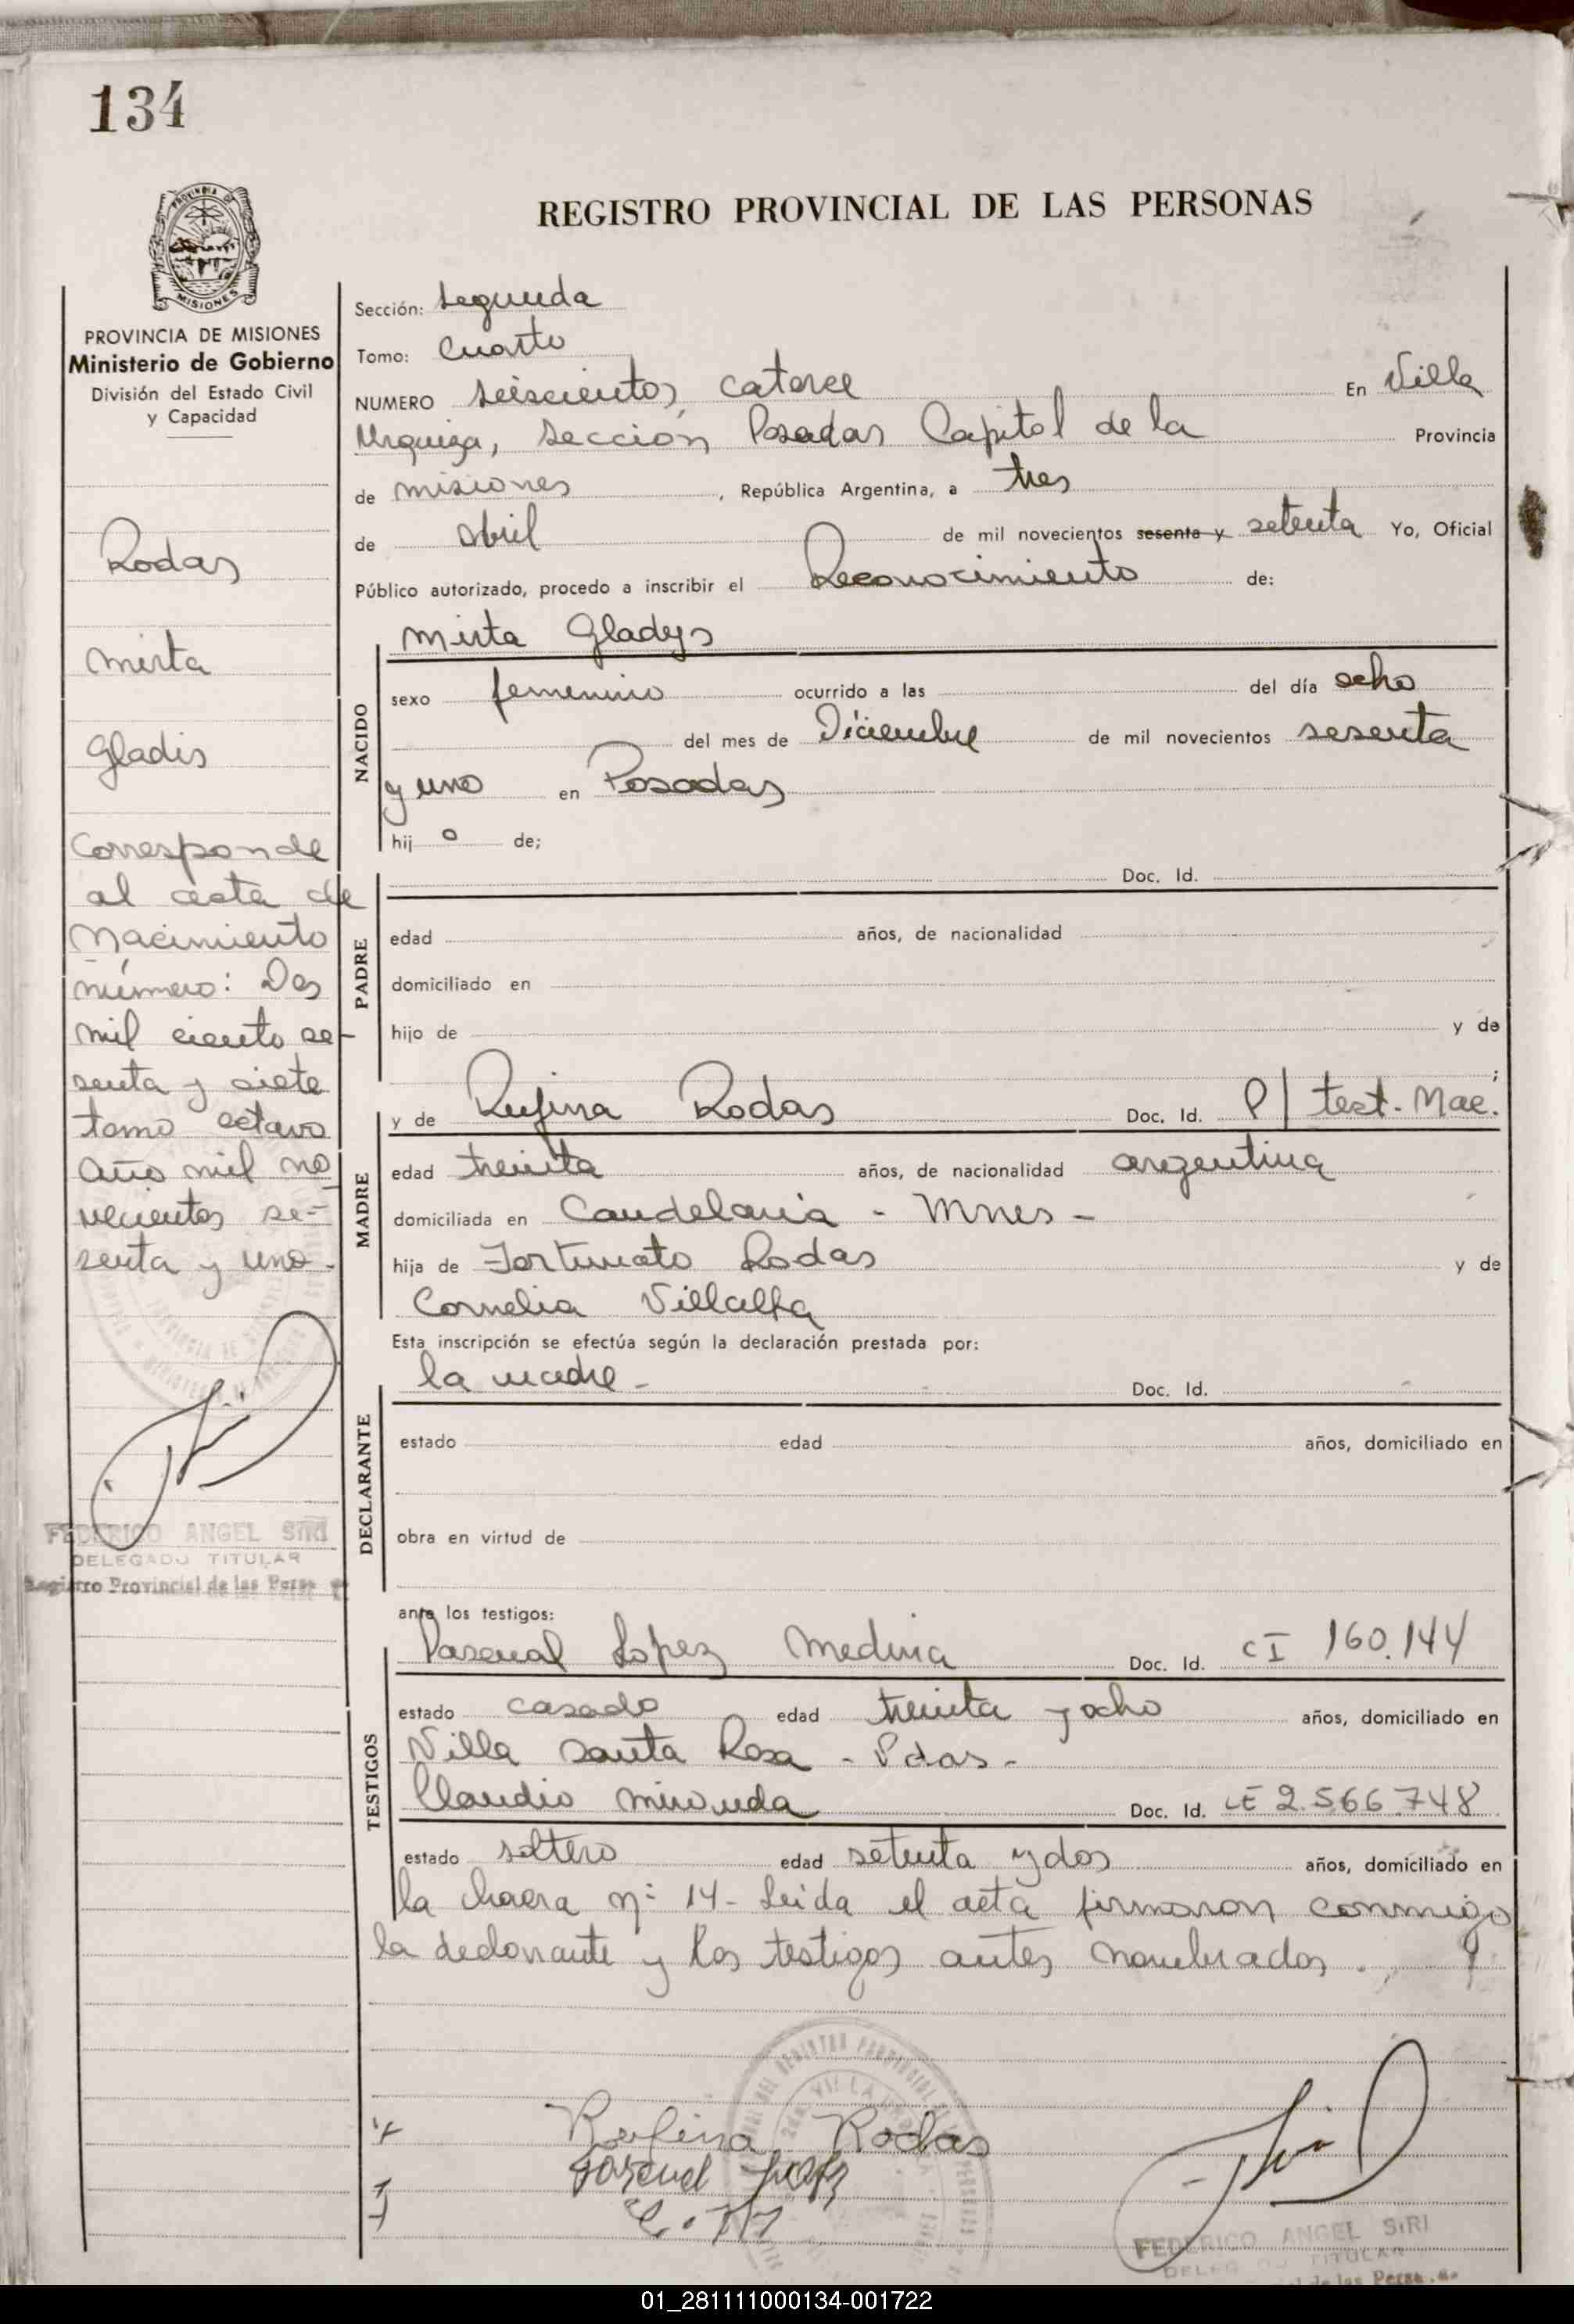 134
REGISTRO PROVINCIAL DE LAS PERSONAS
PROVINCIA DE
MISIONES
PROVINCIA DE MISIONES
Ministerio de Gobierno
División del Estado Civil
y Capacidad
Rodas
Mirta
Gladis
Corresponde
al acta de
Nacimiento
número: Dos
mil ciento se-
senta y siete
tomo octavo
año mil no
vecientos se-
senta y uno.
FEDERICO ANGEL SIRI
DELEGADO TITULAR
Registro Provincial de las Pers
Sección: Segunda
Tomo: Cuarto
NUMERO Seiscientos catorce En Villa
Urquiza, Sección Posadas Capital de la Provincia
de Misiones, República Argentina, a tres
de abril de mil novecientos sesenta y setenta Yo, Oficial
Público autorizado, procedo a inscribir el Reconocimiento de:
NACIDO
Mirta Gladys
sexo femenino ocurrido a las del día ocho
del mes de Diciembre de mil novecientos sesenta
y uno en Posadas
hij a de;
PADRE
Doc. Id.
edad años, de nacionalidad
domiciliado en
hijo de y de
;
MADRE
y de Rufina Rodas Doc. Id. P/ test. Nac.
edad treinta años, de nacionalidad argentina
domiciliada en Candelaria - Mnes -
hija de Fortunato Rodas y de
Cornelia Villalba
Esta inscripción se efectúa según la declaración prestada por:
DECLARANTE
la madre - Doc. Id.
estado edad años, domiciliado en
obra en virtud de
ante los testigos:
TESTIGOS
Pascual Lopez Medina Doc. Id. CI 160.144
estado casado edad treinta y ocho años, domiciliado en
Villa Santa Rosa - Pdas -
Claudio Miranda Doc. Id. LE 2.566.748
estado soltero edad setenta y dos años, domiciliado en
la chacra nº 14- Leida el acta firmaron conmigo
la declarante y los testigos antes nombrados.
Rufina Rodas
FEDERICO ANGEL SIRI
TITULAR
de las Pers
01_281111000134-001722